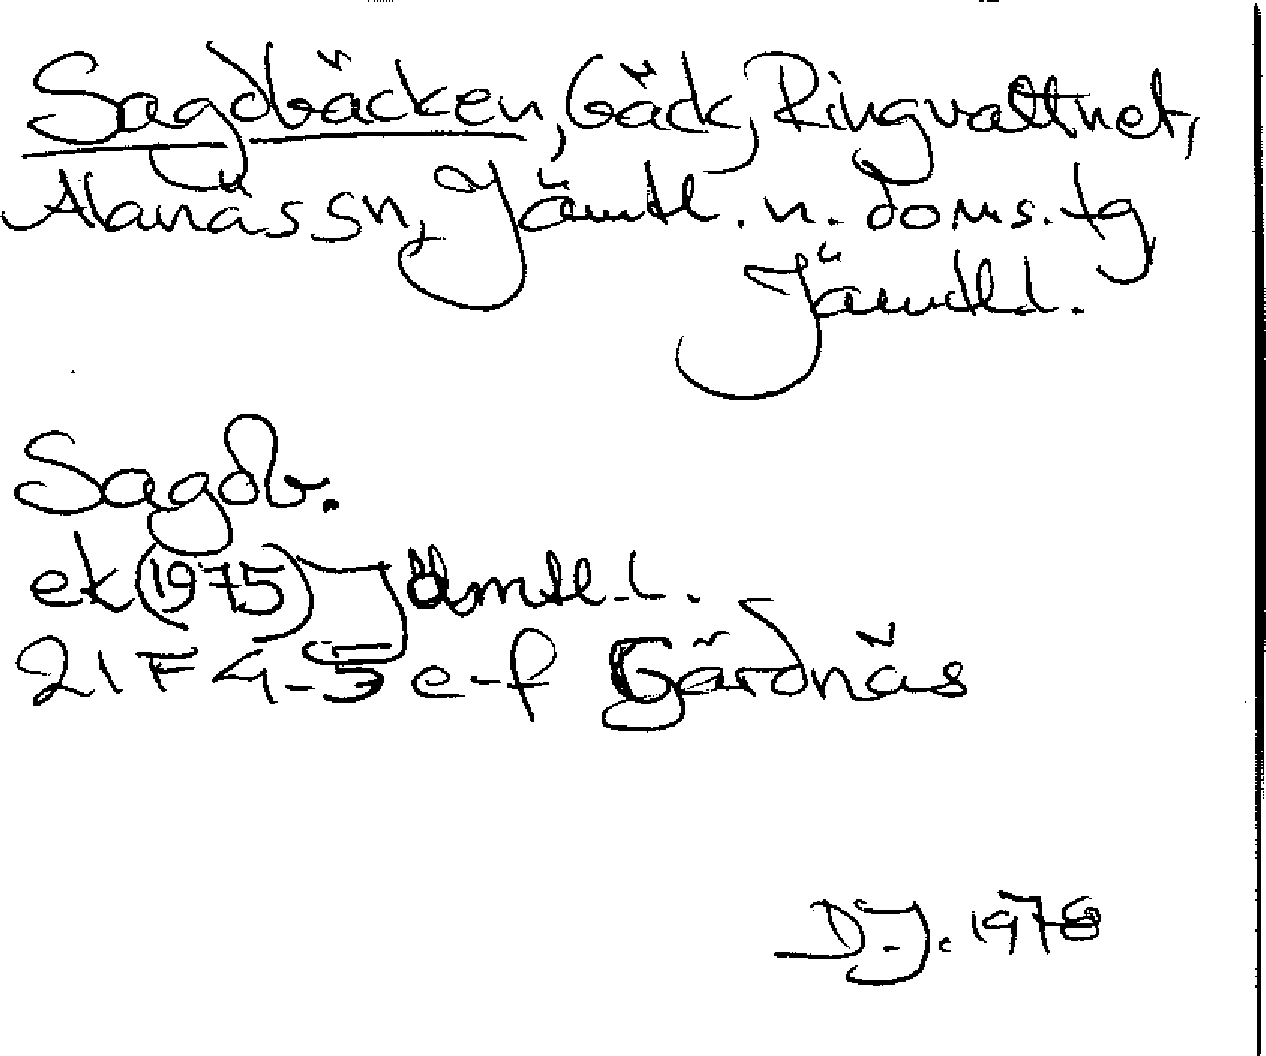 Sagdbäcken, bäck, Ringvattnet,
Alanäs sn, Jämtl. n. doms. tg
Jämtl l.
Sagdb.
ek (1975) Jämtl. L.
21 F 4-5 e-f Gärdnäs
D-J. 1978